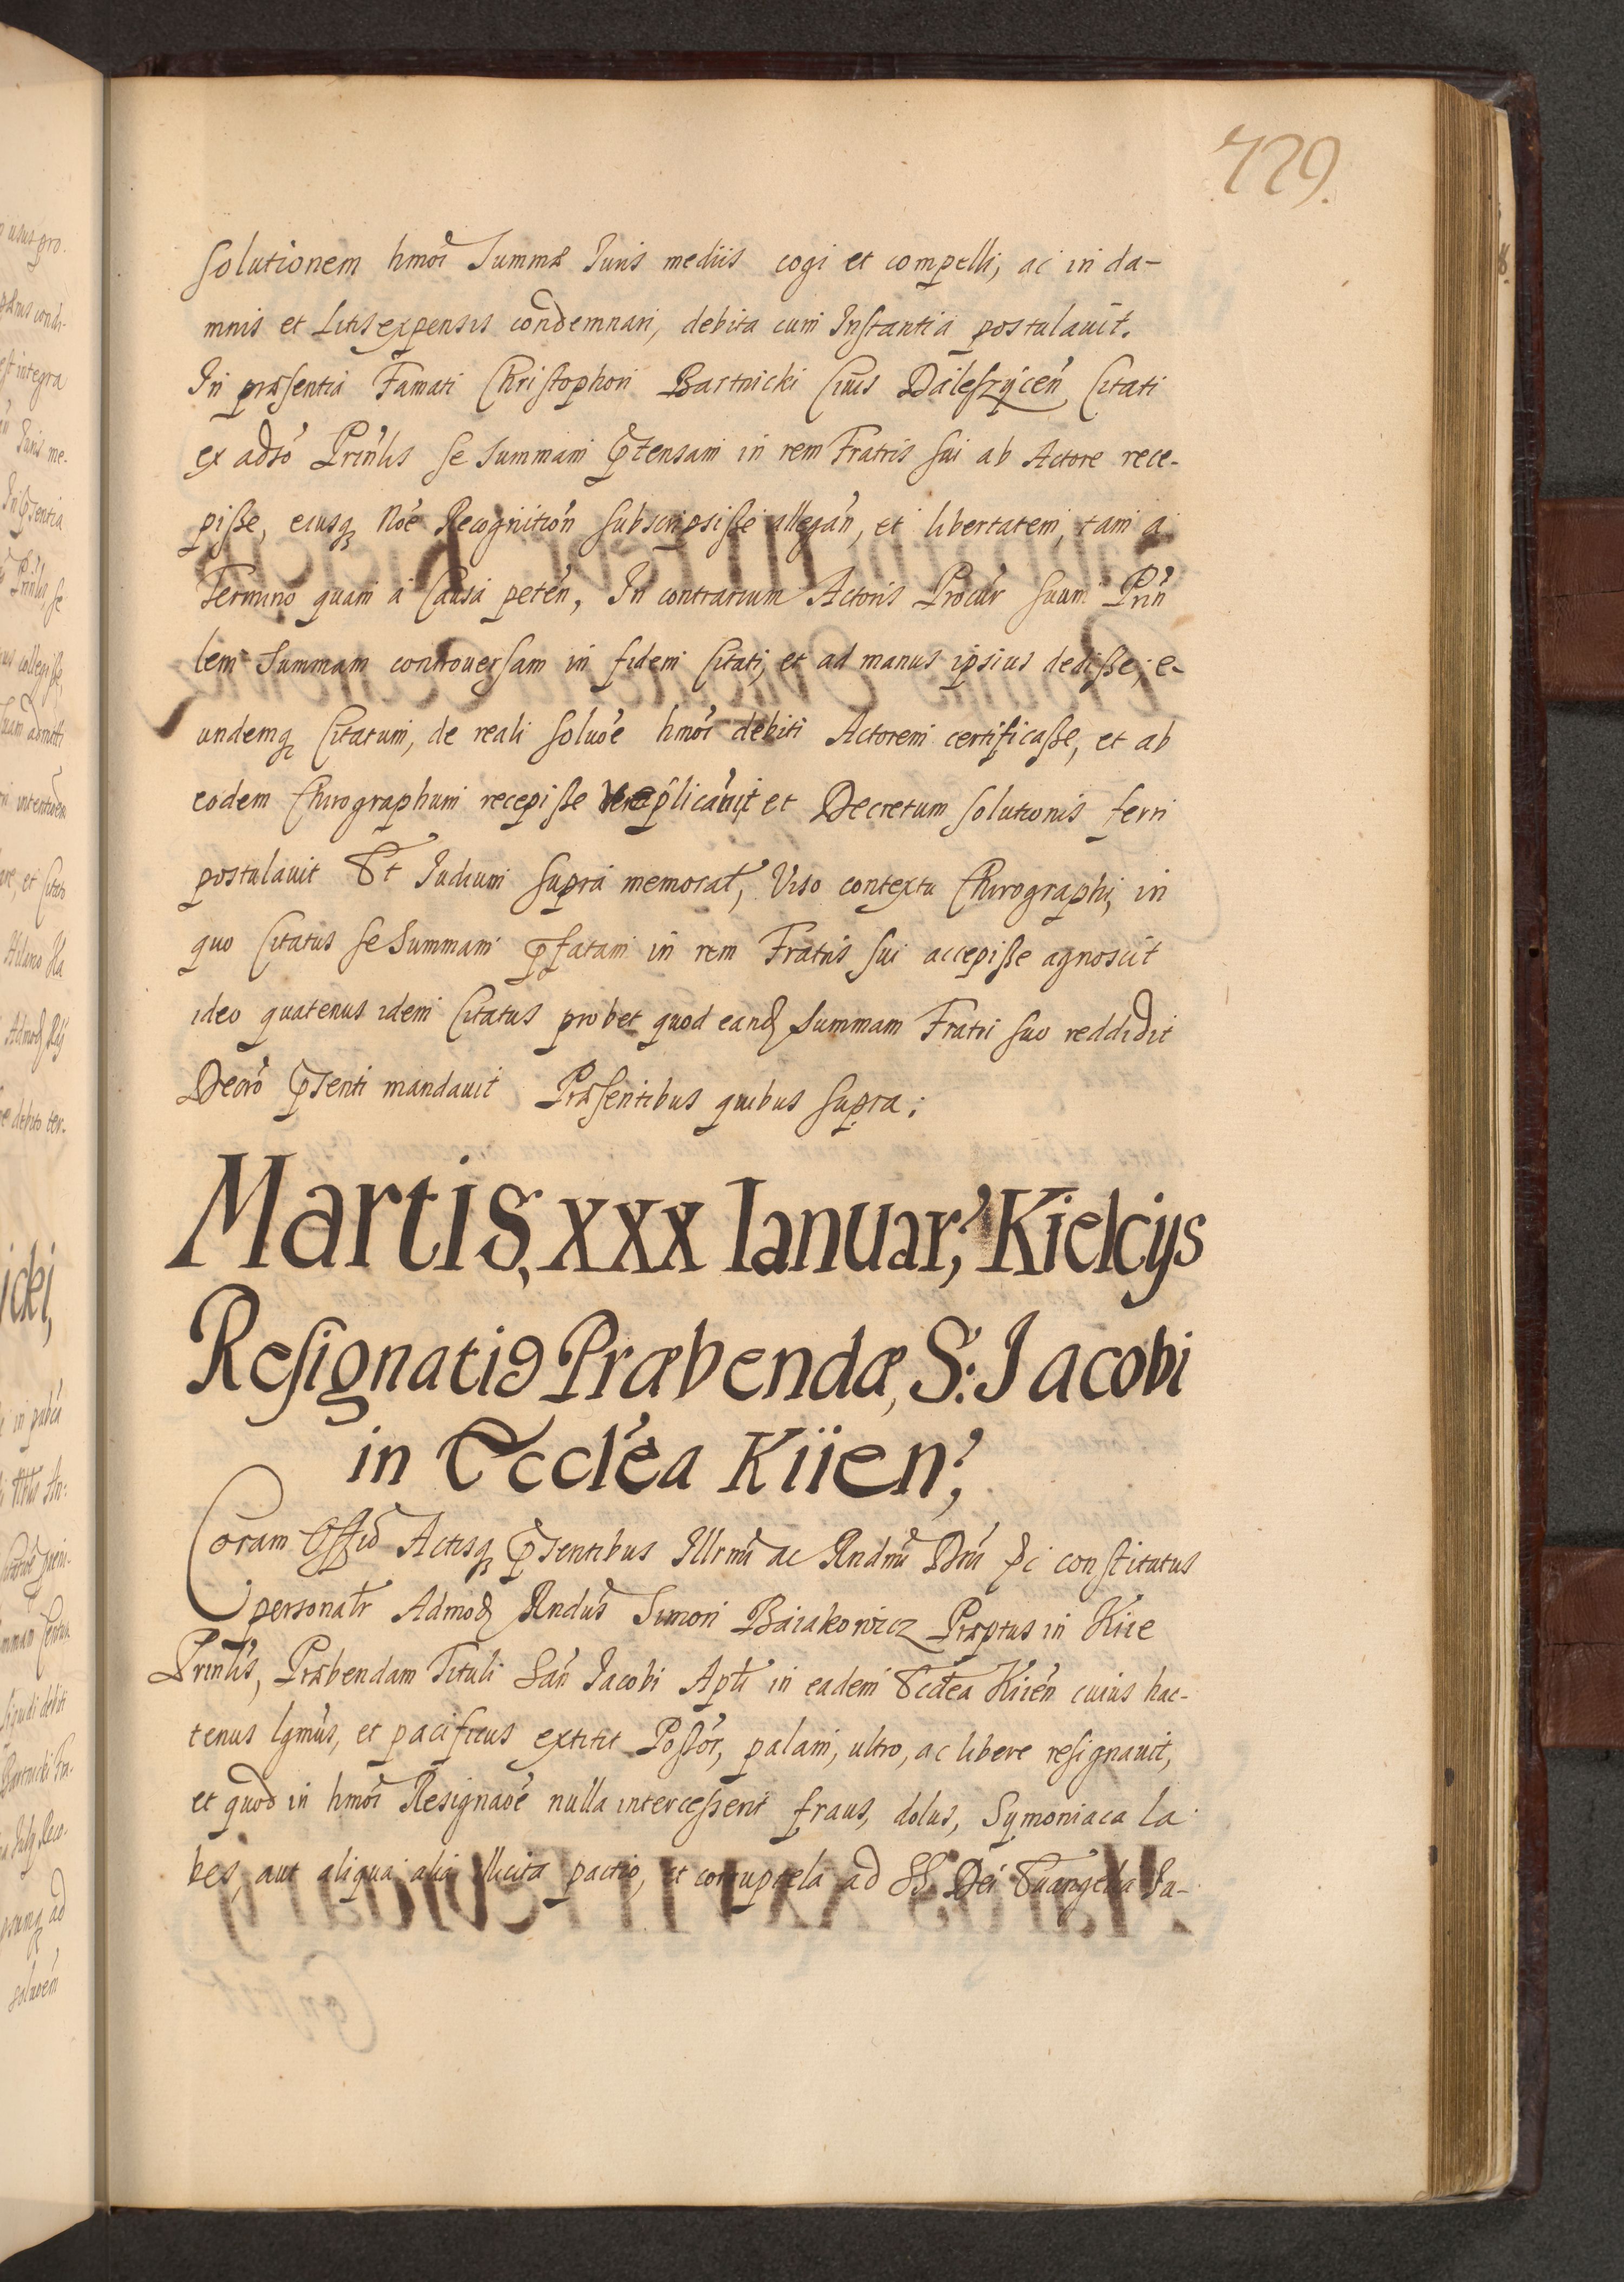 729.
solutionem hmoi Summæ Juris mediis cogi et compelli, ac in da-
mnis et Litis expensis condemnari, debita cum Instantia postulauit.
In præsentia Famati Christophori Bartnicki Ciuis Daleszycen Citati
ex adso Prinlis se Summam ptensam in rem Fratris sui ab Actore rece-
pisse, eiusq Noe Recognition subscripsisse allegan, et libertatem, tam a
Termino quam a Causa peten, In contrarium Actoris Procur suum Prin
lem Summam controuersam in fidem Citati, et ad manus ipsius dedisse, e-
undemq Citatum, de reali soluoe hmoi debiti Actorem certificasse, et ab
eodem Chirographum recepisse replicauit et Decretum solutionis ferri
postulauit Et Judicium supra memorat, Viso contextu Chirographi, in
quo Citatus se Summam pfatam in rem Fratris sui accepisse agnoscit
ideo quatenus idem Citatus probet quod eand Summam Fratri suo reddidit
Decro psenti mandauit Præsentibus quibus supra;
Martis, xxx Ianuar; Kielcijs
Resignatio Præbendæ, S: Jacobi
in Ecclea Kiien;
Coram Offio Actisq psentibus Illrmi ac Rndmi Dni Epi constitutus
personalr Admod Rndus Simon Baiakowicz Præptus in Kiie
Prinlis, Præbendam Tituli San Jacobi Apli in eadem Ecclea Kiien cuius hac-
tenus lgmus, et pacificus extitit Possor, palam, ultro, ac libere resignauit,
et quod in hmoi Resignaoe nulla intercesserit fraus, dolus, Symoniaca la
bes, aut aliqua alia illicita pactio, et corruptela ad SS. Dei Euangelia Ju-